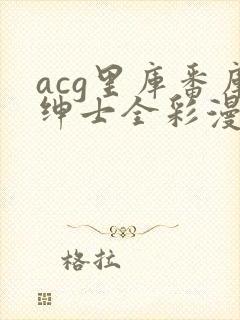 acg里库番库
绅士全彩漫
格拉